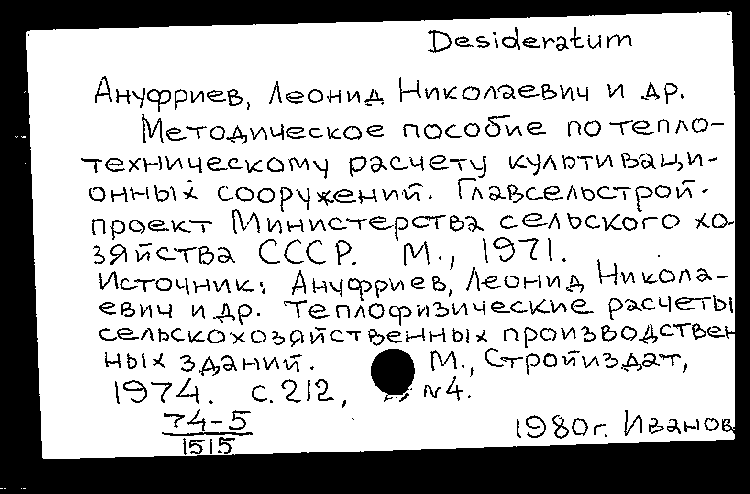 Desideratum
Ануфриев, Леонид Николаевич и др.
Методическое пособие по тепло-
техническому расчету культиваци-
онных сооружений. Главсельстрой-
проект Министерства сельского хо-
зяйства СССР. М., 1971.
Источник: Ануфриев, Леонид Никола-
евич и др. Теплофизические расчеты
сельскохозяйственных производствен
ных зданий. М., Стройиздат,
1974. с. 212, №4.
74-5
1515
1980г. Иванов